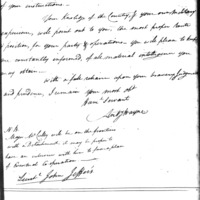 of your instructions.
Your Knolege of the Country, & your own Military
experience, will point out to you, the most proper Route
& position, for your party & operations. You will please to keep
me constantly informed, of all material intelligence you
may obtain.
With a full reliance upon your bravery Judgment
and prudence, I remain your most obt
Hum. Servant
Ant. Wayne
N.B.
Major McCulley will be on the frontiers
with a Detachment. it may be proper to
have an interview with him to form a plan
of Combined Co operation
Lieut. John Jeffers